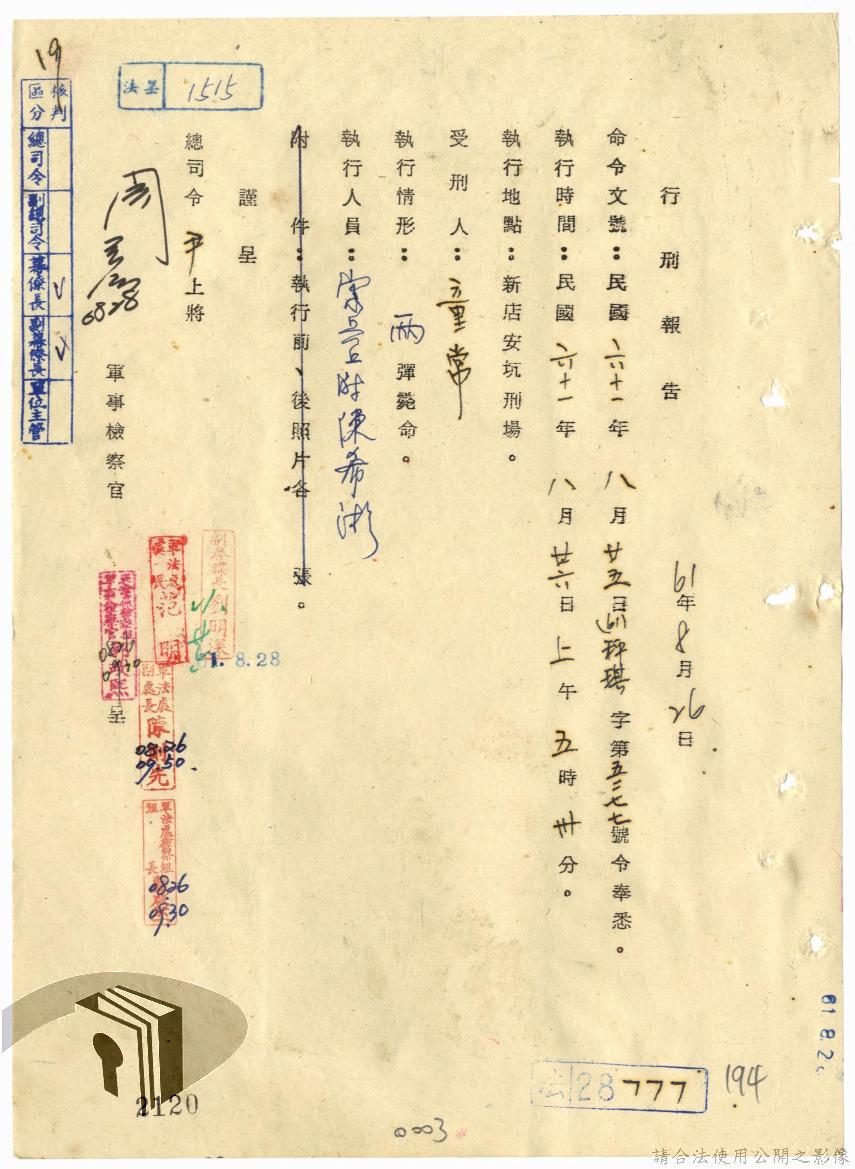 行刑報告
61年8月26日
命令文號：民國六十一年八月廿五日(61)秤琪字第五三七七號令奉悉。
執行時間：民國六十一年八月廿六日上午五時卅分。
執行地點：新店安坑刑場。
受刑人：童常
執行情形：兩彈斃命。
執行人員：陳希
附件：執行前、後照片各張。
謹呈
總司令尹上將
軍事檢察官
呈
周
0828
法呈 1515
19
核判區分
總司令
副總司令
幕僚長 V
副幕僚長 V
單位主管
61.8.28
軍法處
范明
0826
0930
軍法處副處長
0826
0950.
軍法處檢察組組長
0826
0930
2120
0003
法 28777
194
61.8.2
請合法使用公開之影像